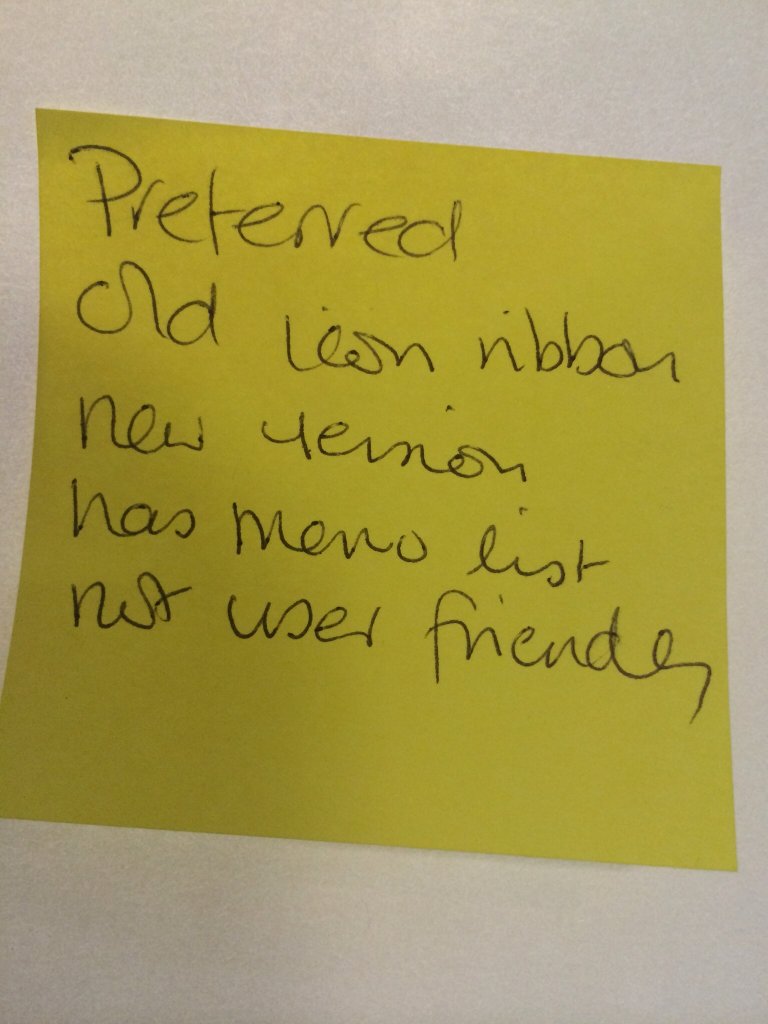 Preferred
old icon ribbon
new version
has menu list
not user friendly